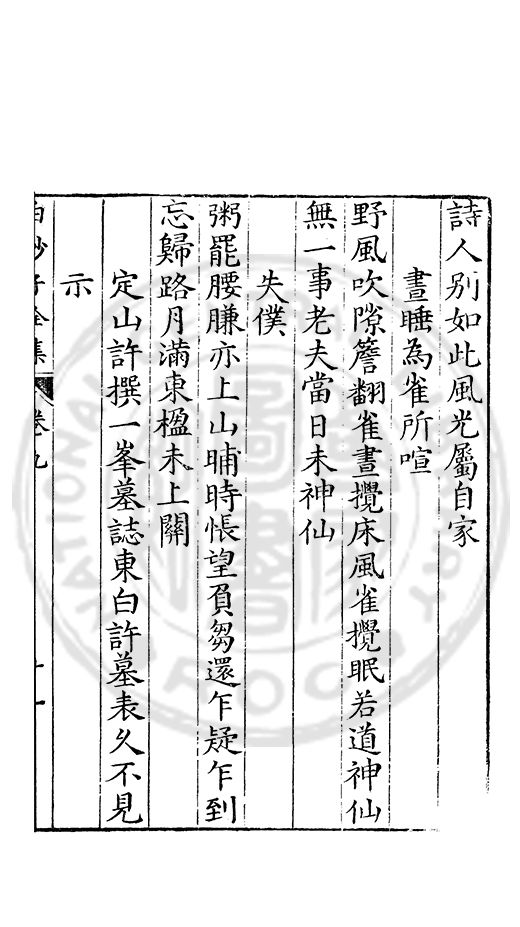 詩人别如此風光屬自家
晝睡為雀所喧
野風吹隙簷翻雀晝攪床風雀攪眠若道神仙
無一事老夫當日未神仙
失僕
粥罷腰膁亦上山晡時悵望負芻還乍疑乍到
忘歸路月滿東楹未上關
定山許撰一峯墓誌東白許墓表久不見
示
白沙子全集 卷九 十一